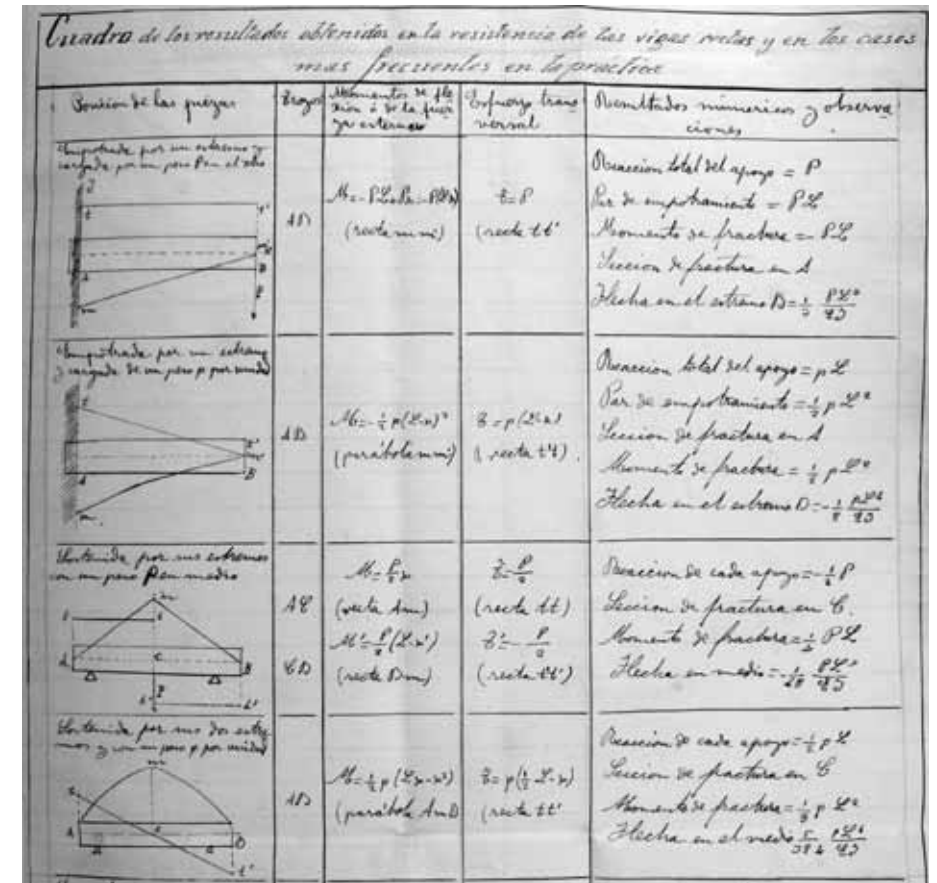 Cuadro de los resultados obtenidos en la resistencia de las vigas rectas y en los casos
mas frecuentes en la practica
Posicion de las piezas
Trozos
Momentos de fle
xion ó de la fuer
za externa
Esfuerzo trans
versal
Resultados numericos y observa
ciones
Empotrada por un extremo y
cargada por un peso P en el otro
AB
M=-PL+Px=-P(L-x)
(recta mm')
t=P
(recta tt'
Reaccion total del apoyo = P
Par de empotramiento = PL
Momento de fractura = PL
Seccion de fractura en A
Flecha en el extremo B=
Empotrada por un extremo
y cargada de un peso p por unidad
AB
M=-½ p(L-x)²
(parábola mm')
t=p(L-x)
(recta t't)
Reaccion total del apoyo = pL
Par de empotramiento = ½ pL²
Seccion de fractura en A
Momento de fractura = ½ pL²
Flecha en el extremo B=
Sostenida por sus extremos
con un peso P en medio
AC
M=P/2 x
(recta Am)
t=P/2
(recta tt)
CB
M'=P/2 (L-x')
(recta Bm)
t'=-P/2
(recta tt')
Reaccion de cada apoyo=
Seccion de fractura en C.
Momento de fractura=
Flecha en medio=
Sostenida por sus dos extre
mos y con un peso p por unidad
AB
M=½ p(Lx-x²)
(parábola AmB)
t=p(½ L-x)
(recta tt'
Reaccion de cada apoyo=½ pL
Seccion de fractura en C
Momento de fractura=⅛ pL²
Flecha en el medio